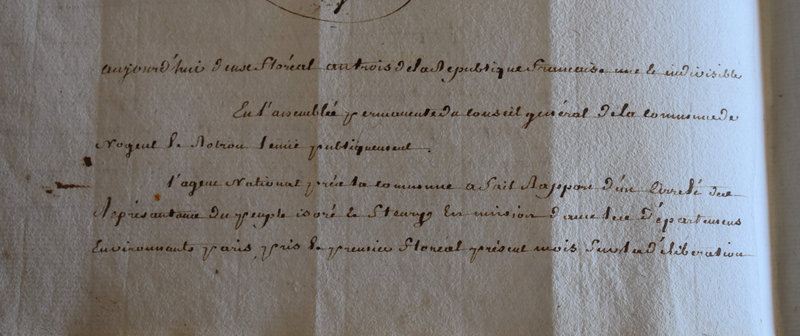 aujourd'hui deux floréal an trois de la Republique francaise une & indivisible
En l'assemblée permanente du conseil général de la commune de
Nogent le Rotrou tenue publiquement.
l'agent National près la commune a fait Rapport d'un Arreté des
Représentans du peuple isoré & en mission dans les Départemens
Environnants paris pris le premier floréal présent mois sur la déliberation